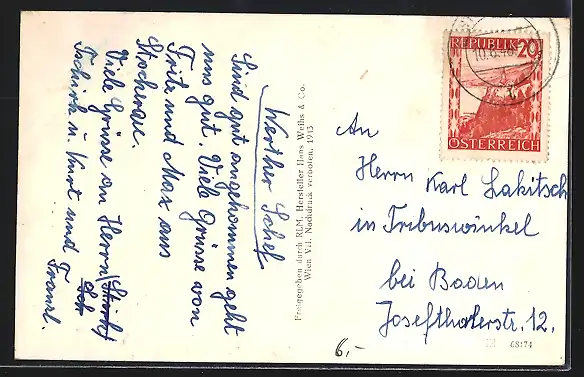 Werther Schef
Sind gut angekommen geht
uns gut. Viele Grüsse von
Fritz und Max aus
Stockerau.
Viele Grüsse an Herrn
u. Kurt und Franzl.
Freigegeben durch RLM. Hersteller Hans Weihs & Co.
Wien VII. Nachdruck verboten, 1943
REPUBLIK 20
ÖSTERREICH
10.6.48
An
Herrn Karl Lakitsch
in Tribuswinkel
bei Baden
Josefthalerstr. 12.
6.-
68174